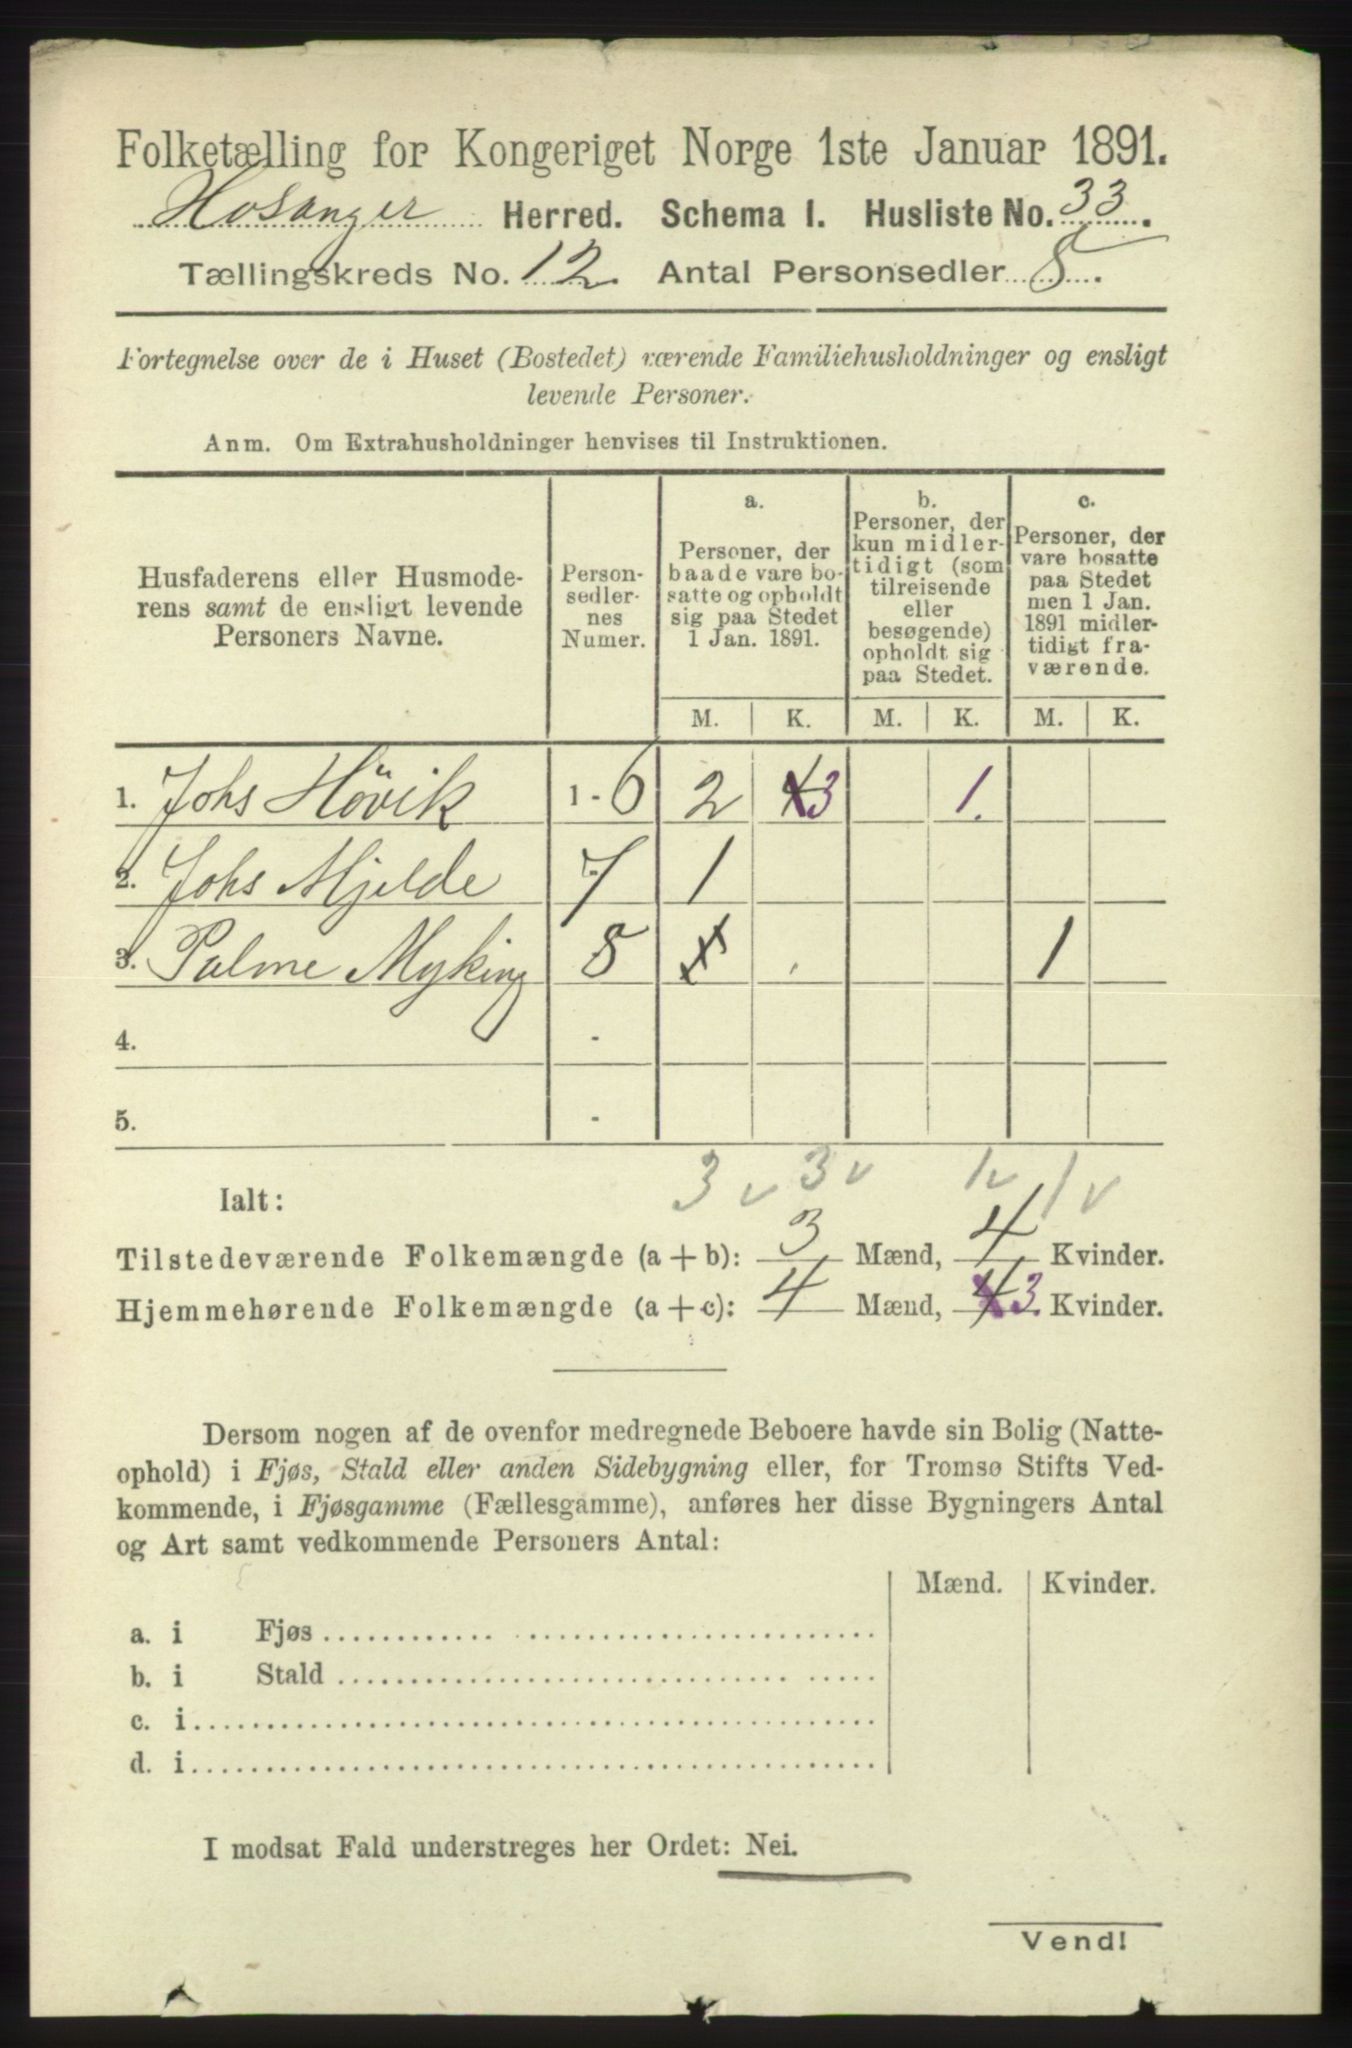 Folketælling for Kongeriget Norge 1ste Januar 1891.
Hosanger Herred. Schema I. Husliste No. 33.
Tællingskreds No. 12. Antal Personsedler 8.
Fortegnelse over de i Huset (Bostedet) værende Familiehusholdninger og ensligt
levende Personer.
Anm. Om Extrahusholdninger henvises til Instruktionen.
Husfaderens eller Husmode-
rens samt de ensligt levende
Personers Navne.
Person-
sedler-
nes
Numer.
a.
Personer, der
baade vare bo-
satte og opholdt
sig paa Stedet
1 Jan. 1891.
b.
Personer, der
kun midler-
tidigt (som
tilreisende
eller
besøgende)
opholdt sig
paa Stedet.
c.
Personer, der
vare bosatte
paa Stedet
men 1 Jan.
1891 midler-
tidigt fra-
værende.
M. K. M. K. M. K.
1. Johs Hövik 1 - 6 2 4 3 1.
2. Johs Mjelde 7 1
3. Palme Myking 8 1
4. -
5. -
3 v 3 v 1 v 1 v
Ialt:
Tilstedeværende Folkemængde (a + b): 3 Mænd, 4 Kvinder.
Hjemmehørende Folkemængde (a + c): 4 Mænd, 4 3. Kvinder.
Dersom nogen af de ovenfor medregnede Beboere havde sin Bolig (Natte-
ophold) i Fjøs, Stald eller anden Sidebygning eller, for Tromsø Stifts Ved-
kommende, i Fjøsgamme (Fællesgamme), anføres her disse Bygningers Antal
og Art samt vedkommende Personers Antal:
Mænd. Kvinder.
a. i Fjøs
b. i Stald
c. i
d. i
I modsat Fald understreges her Ordet: Nei.
Vend!